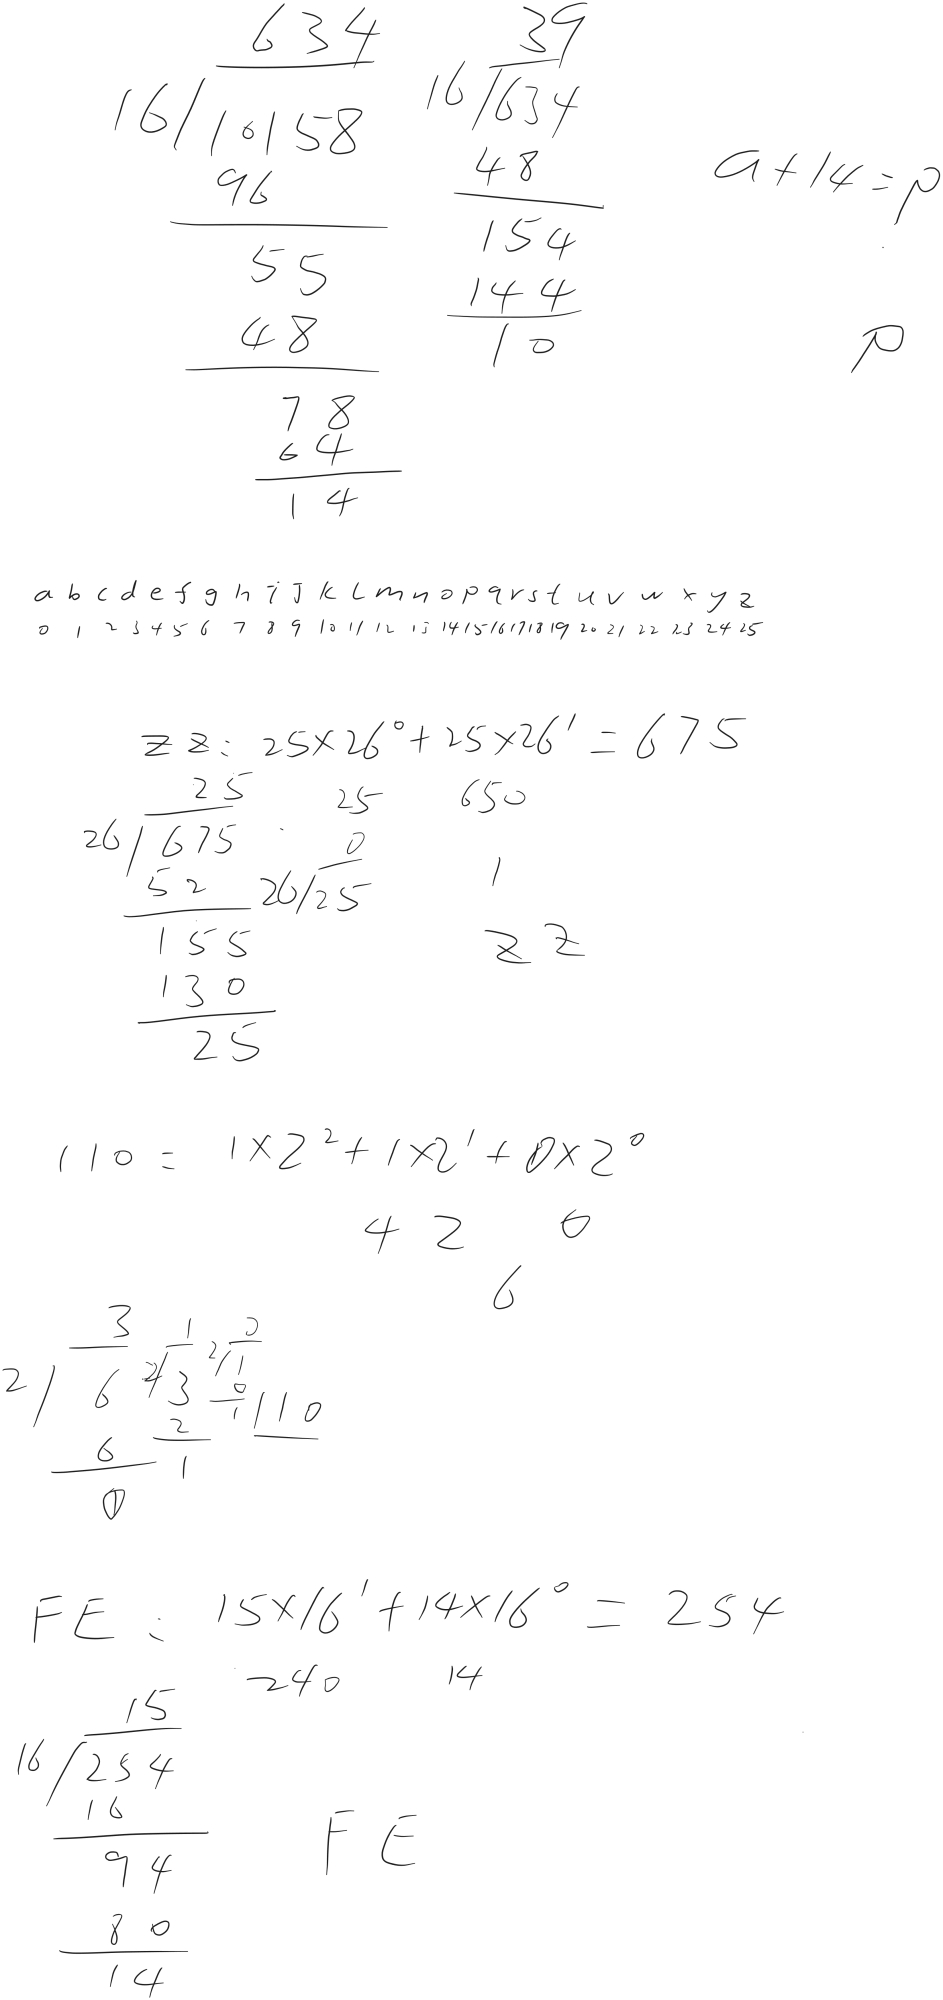 634 39
16/10158 16/634
96 48 a+14=p
55 154
48 144
78 10 p
64
14
a b c d e f g h i J k L m n o p q r s t u v w x y z
0 1 2 3 4 5 6 7 8 9 10 11 12 13 14 15 16 17 18 19 20 21 22 23 24 25
zz: 25×26⁰+25×26¹=675
25 25 650
26/675 0
52 26/25 1
155 zz
130
25
110 = 1×2²+1×2¹+0×2⁰
4 2 0
6
3 1 0
2/6 2/3 2/1
6 2 0 110
0 1 1
FE: 15×16¹+14×16⁰=254
240 14
15
16/254
16
94 FE
80
14